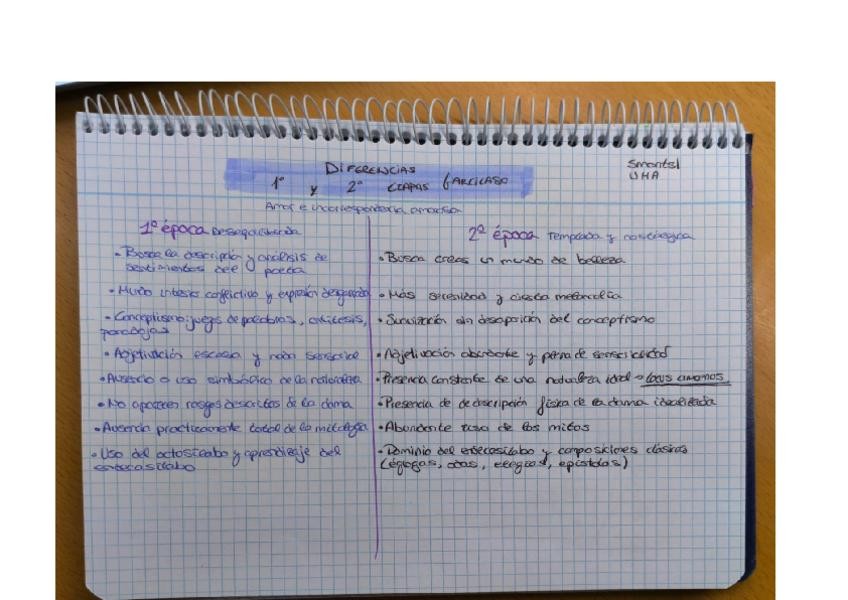 DIFERENCIAS
1º y 2º ETAPAS GARCILASO
Smartsl
UHA
Amor e incorrespondencia amorosa
1ª época Desequilibrada
• Busca la descripción y análisis de
sentimientos del poeta
• Mundo interior conflictivo y expresión desgarrada
• Conceptismo: juegos de palabras, antítesis,
paradojas
• Adjetivación escasa y nada sensorial
• Ausencia o uso simbólico de la naturaleza
• No aparecen rasgos descritos de la dama
• Ausencia practicamente total de la mitología
• Uso del octosílabo y aprendizaje del
endecasílabo
2ª época Templada y nostálgica
• Busca crear un mundo de belleza
• Más serenidad y cierta melancolía
• Suavización sin desaparición del conceptismo
• Adjetivación abundante y plena de sensorialidad
• Presencia constante de una naturaleza ideal → locus amoenus
• Presencia de descripción física de la dama idealizada
• Abundante uso de los mitos
• Dominio del endecasílabo y composiciones clásicas
(églogas, odas, elegías, epístolas)